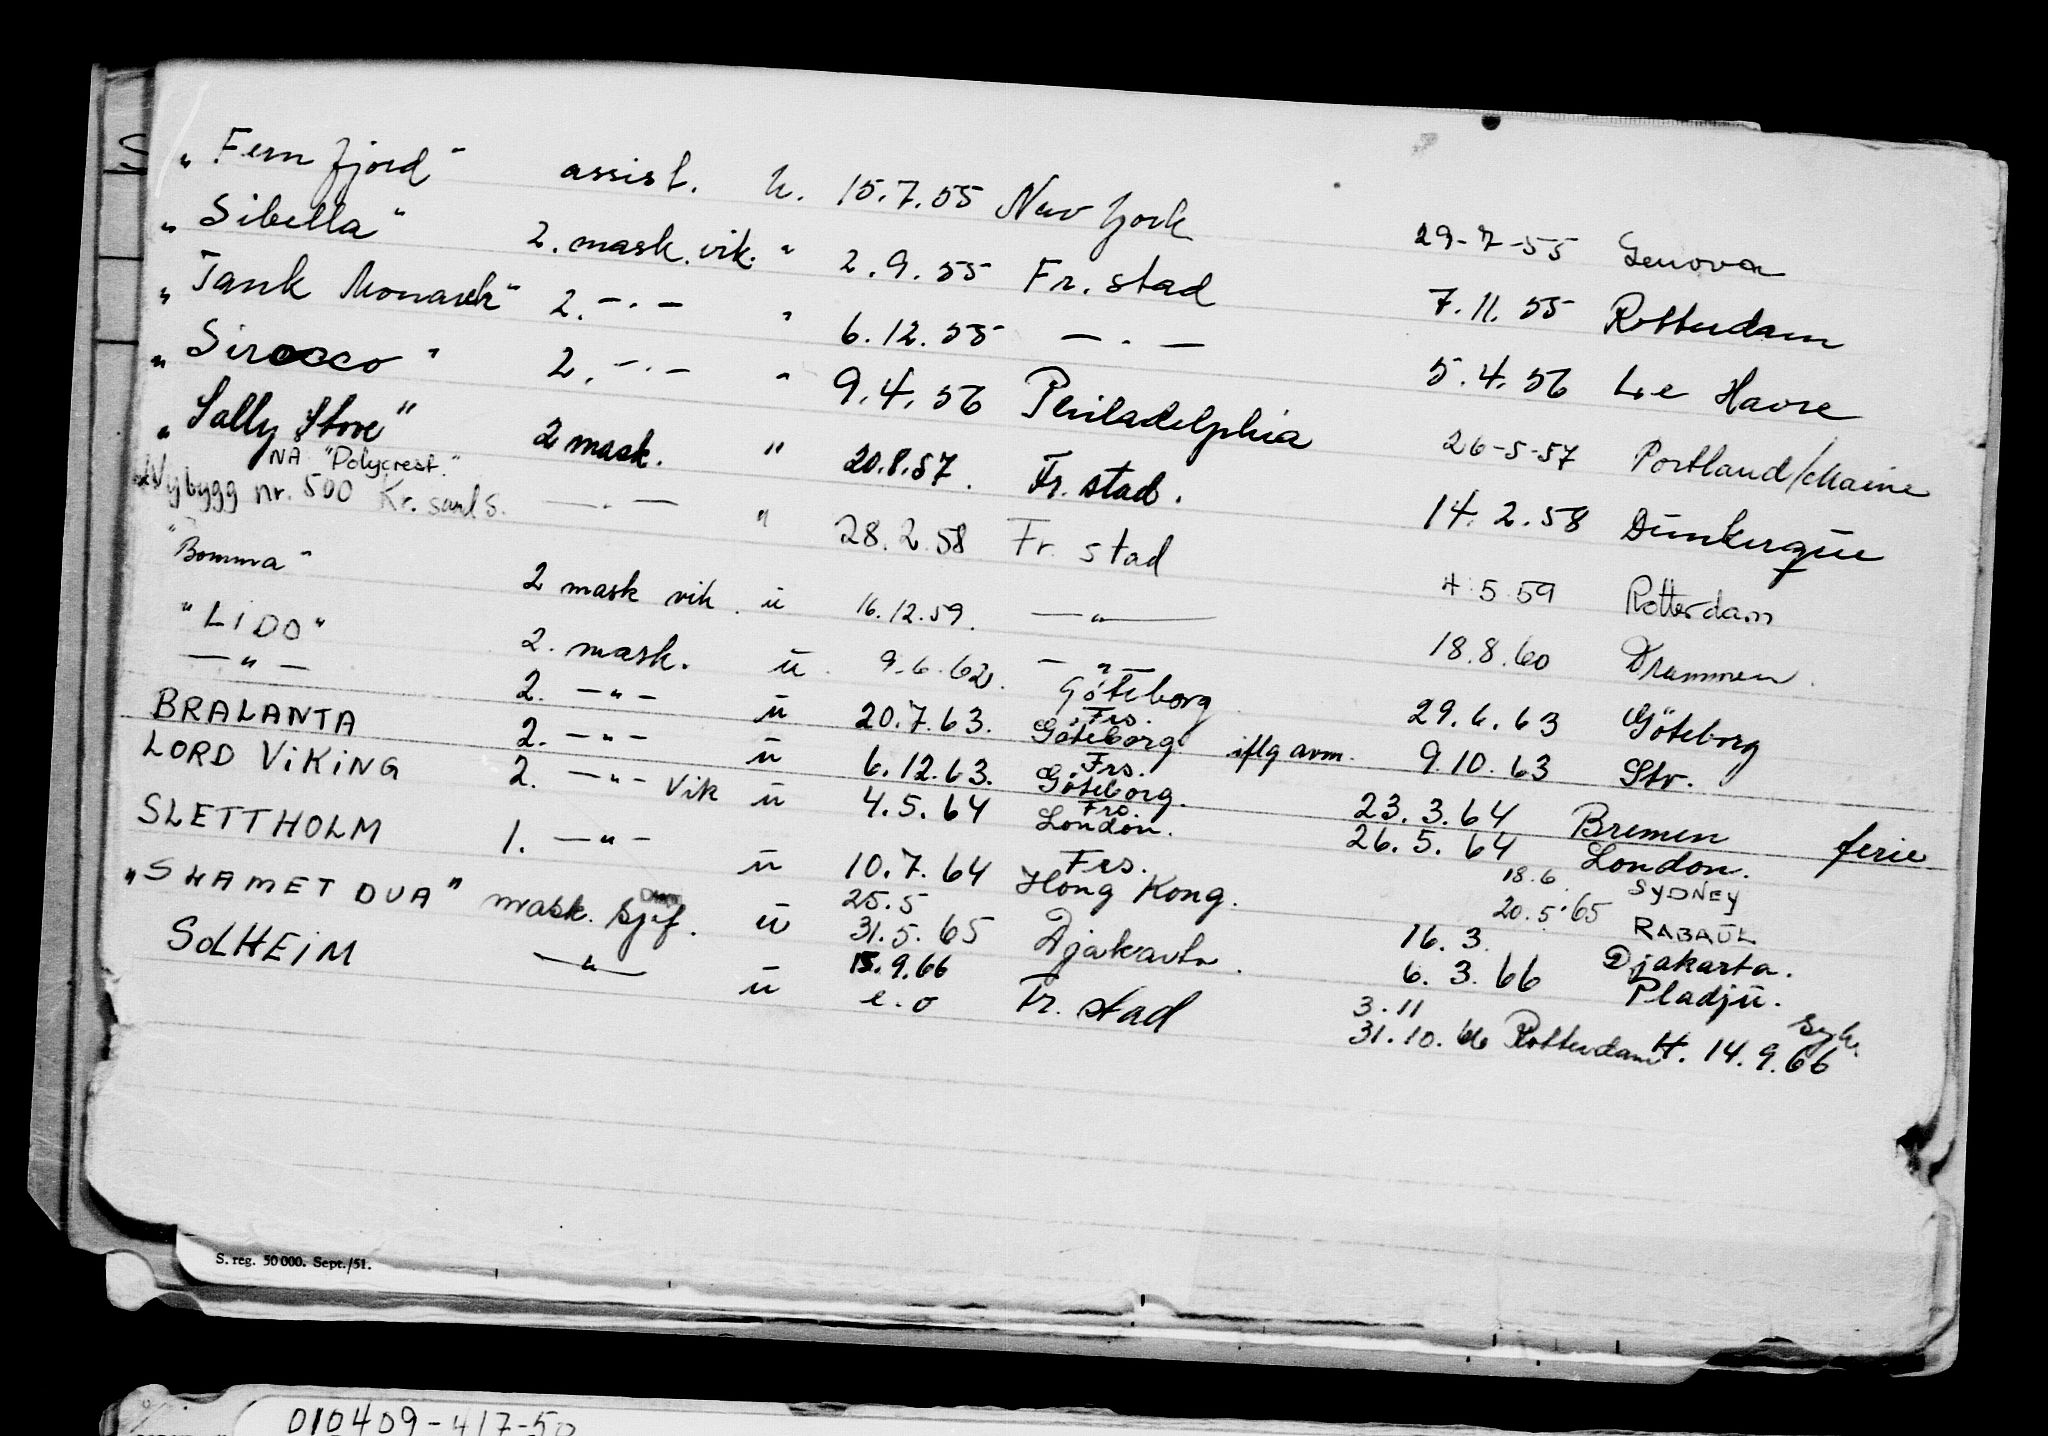 „Fernfjord" assist. u. 15.7.55 New York 29-7-55 Genova
„Sibella" 2. mask. vik. " 2.9.55 Fr.stad 7.11.55 Rotterdam
„Tank Monarch" 2. -·- " 6.12.55 -·- 5.4.56 Le Havre
„Sirocco" 2. -·- " 9.4.56 Philadelphia 26-5-57 Portland/Maine
„Sally Stove" 2 mask. " 20.8.57. Fr.stad. 14.2.58 Dünkerque
NÅ "Polycrest."
Nybygg nr. 500 Kr.sand S. -·- " 28.2.58 Fr.stad 4.5.59 Rotterdam
"Bomma" 2 mask vik. ü 16.12.59. -"- 18.8.60 Drammen.
"LiDO" 2. mask. ü. 9.6.62. -"- Göteborg 29.6.63 Göteborg
-"- 2. -"- ü 20.7.63. Frs. Göteborg iflg avm. 9.10.63 Str.
BRALANTA 2. -"- ü 6.12.63. Frs. Göteborg. 23.3.64 Bremen ferie
LORD ViKiNG 2. -"- Vik ü 4.5.64 Frs. London. 26.5.64 London.
SLETTHOLM 1. -"- ü 10.7.64 Frs. Hong Kong. 18.6 SYDNEY
20.5.65 RABAÜL
„SLAMET DUA" mask. sjef. ü 25.5 31.5.65 Djakarta. 16.3. Djakarta.
6.3.66 Pladjü.
SOLHEiM -"- ü 15.9.66 e.o Fr.stad 3.11 31.10.66 Rotterdam H. 14.9.66 syk.
S. reg. 50 000. Sept./51.
010409-417-50